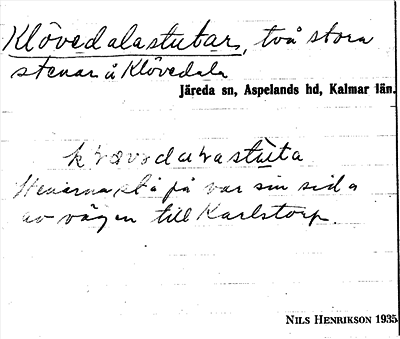 Klövedalastubar, två stora
stenar å Klövedala
Järeda sn, Aspelands hd, Kalmar län.
Stenarna stå på var sin sida
av vägen till Karlstorp.
NILS HENRIKSON 1935.